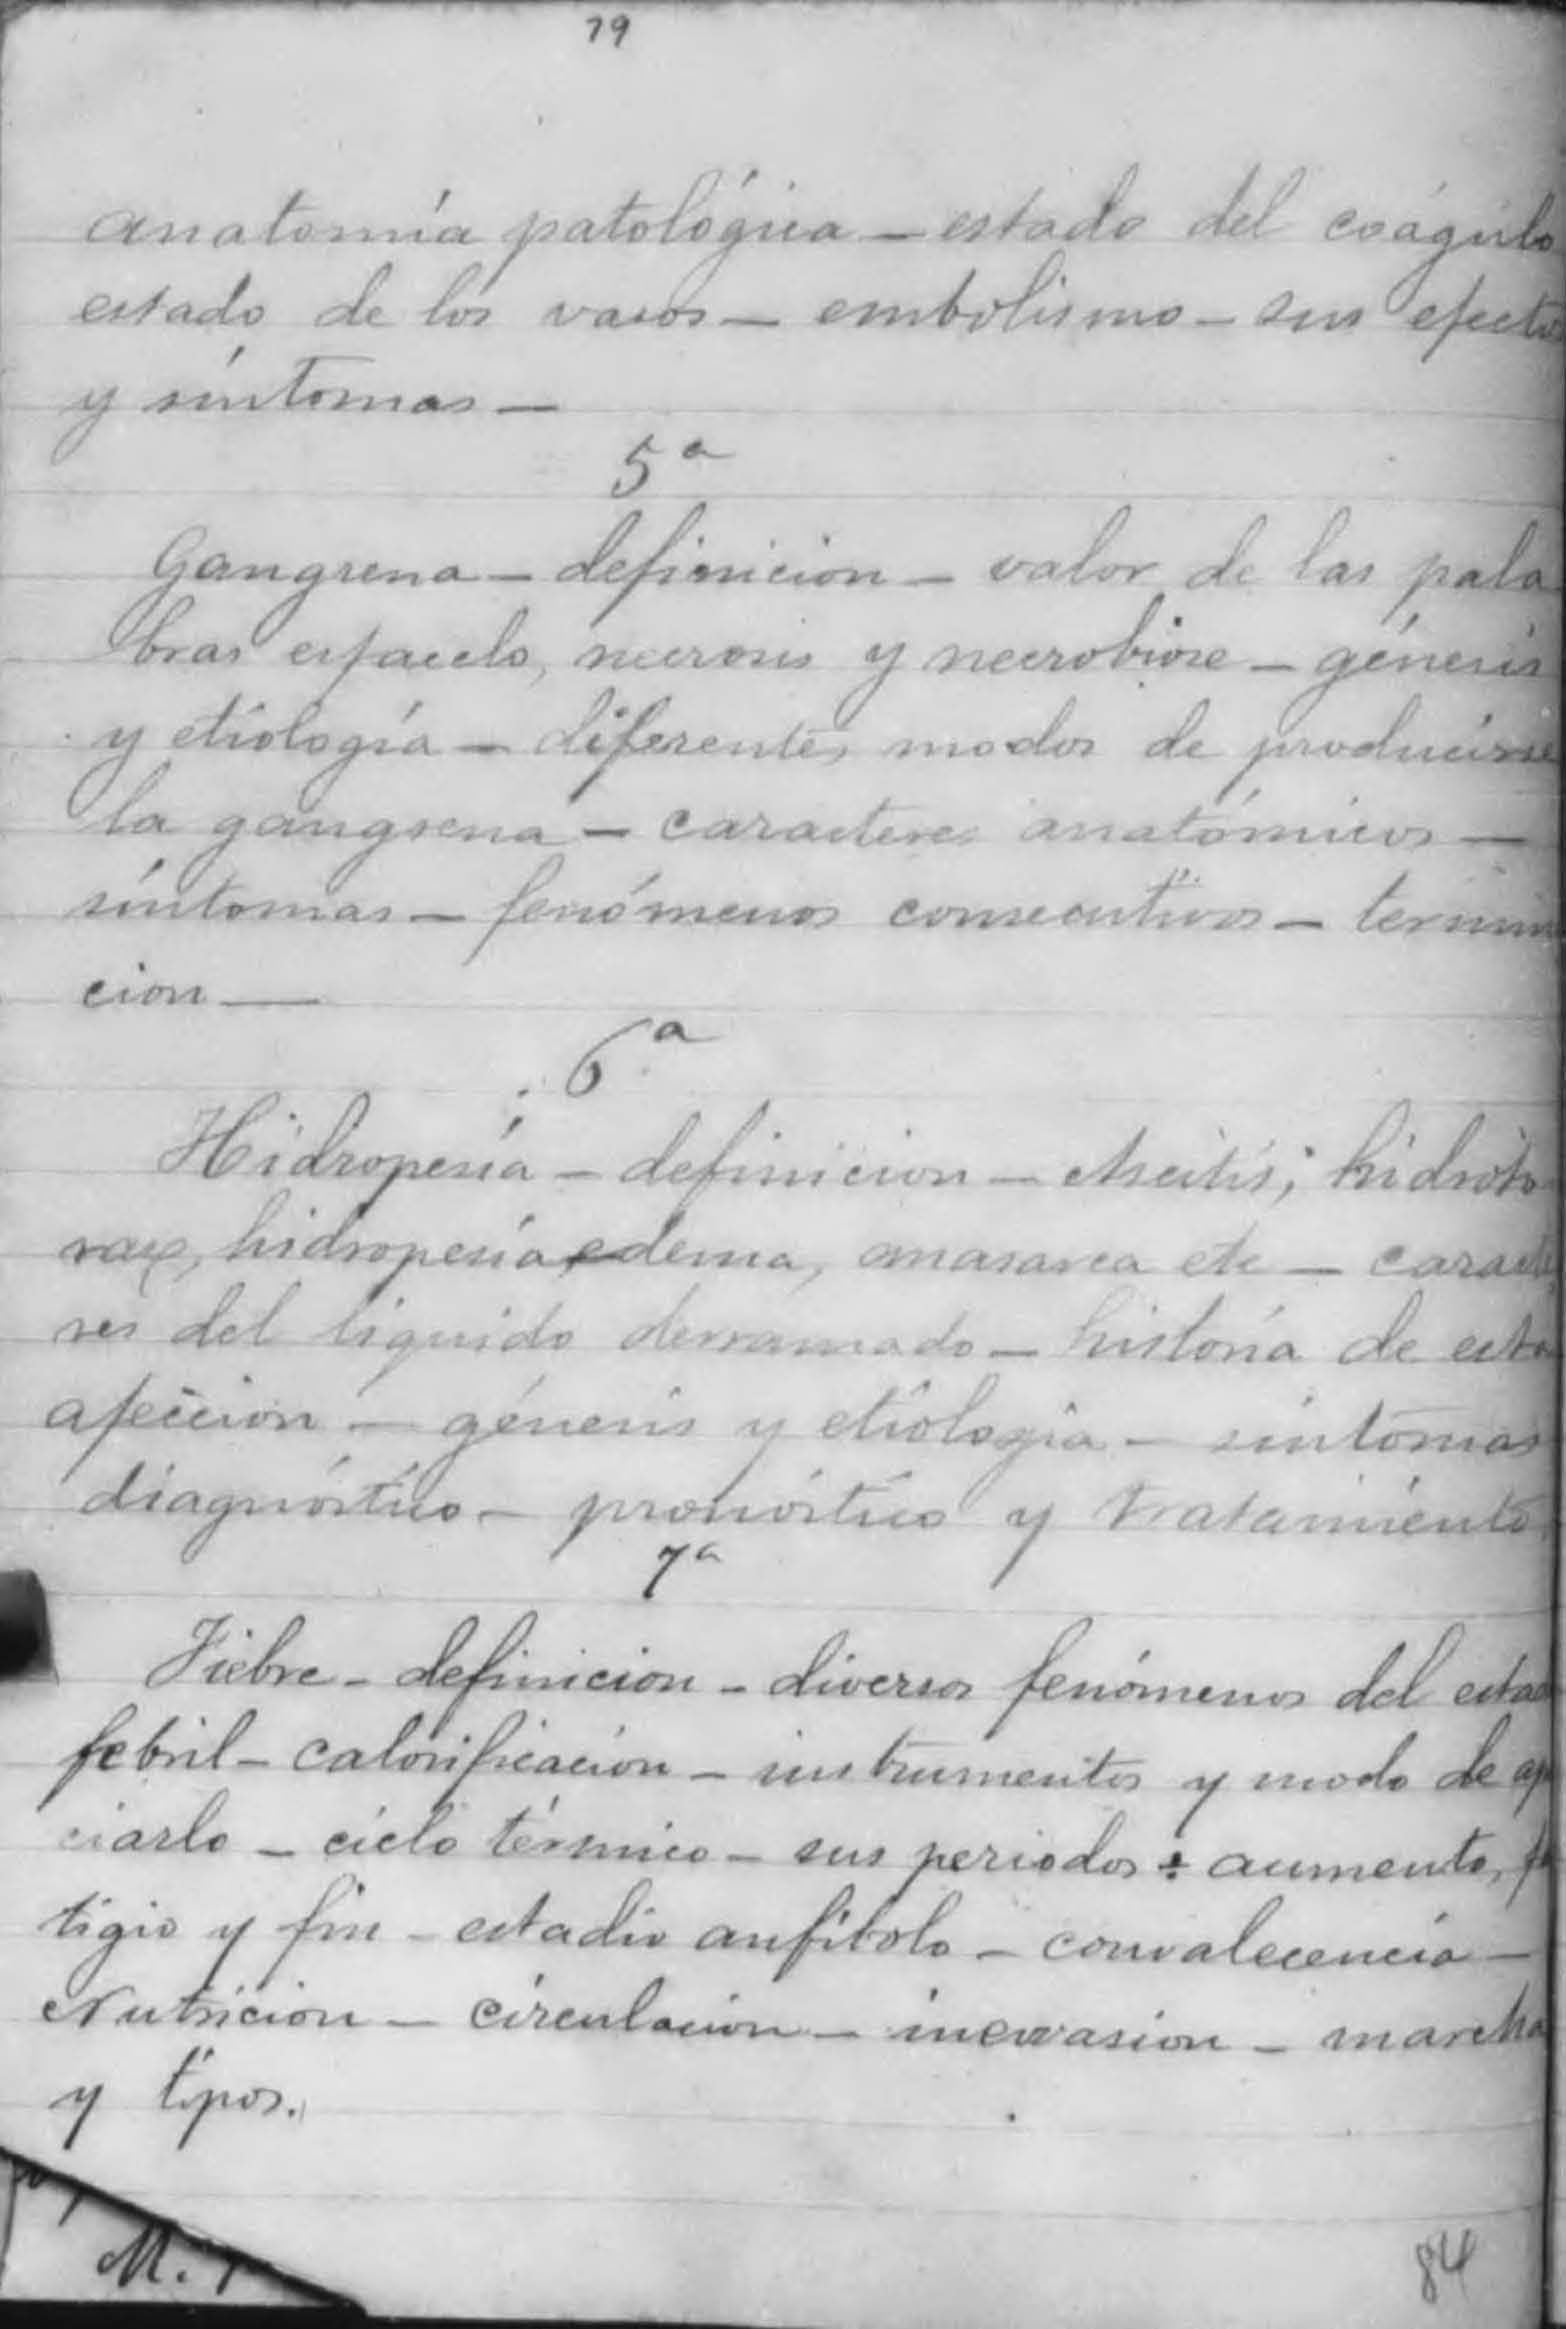 79
anatomía patológica — estado del coágulo
estado de los vasos — embolismo — sus efectos
y síntomas —
5ª
Gangrena — definicion — valor de las pala
bras esfacelo, necrosis y necrobiose — génesis
y etiología — diferentes modos de producirse
la gangrena — caracteres anatómicos —
síntomas — fenómenos consecutivos — termin
cion —
6ª
Hidropesía — definicion — Ascitis; hidroto
rax, hidropesía edema, anasarca etc — caracte
res del líquido derramado — historia de esta
afeccion — génesis y etiología — síntomas
diagnóstico — pronóstico y tratamiento
7ª
Fiebre — definicion — diversos fenómenos del esta
febril — calorificacion — instrumentos y modo de ap
ciarlo — ciclo térmico — sus periodos: aumento,
tigio y fin — estadio anfibolo — convalecencia —
Nutricion — circulacion — — marcha
y tipos.
M.
84